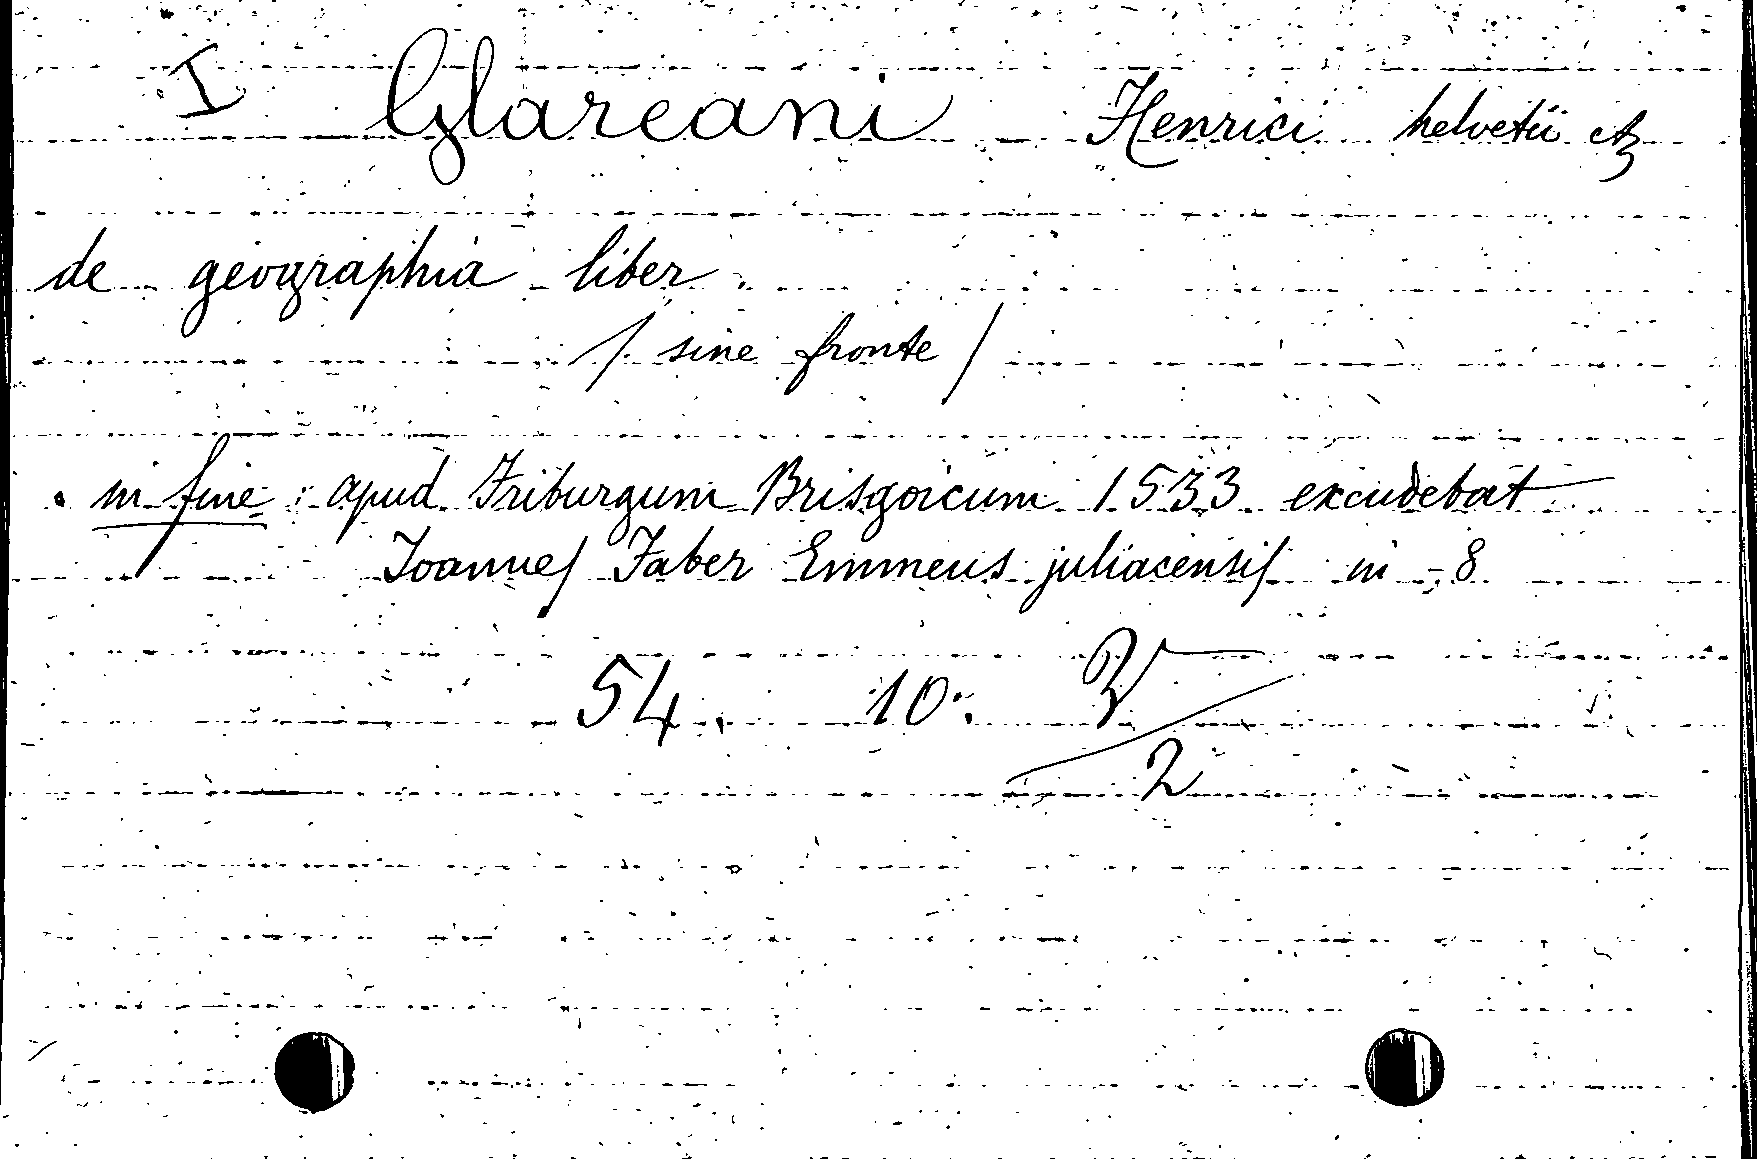 I Glareani Henrici helvetii etz
de geographia liber
/ sine fronte /
in fine : apud Friburgum Brisgoicum 1533 excudebat
Joannes Faber Emmeus juliacensis in -8
54. 10.
2